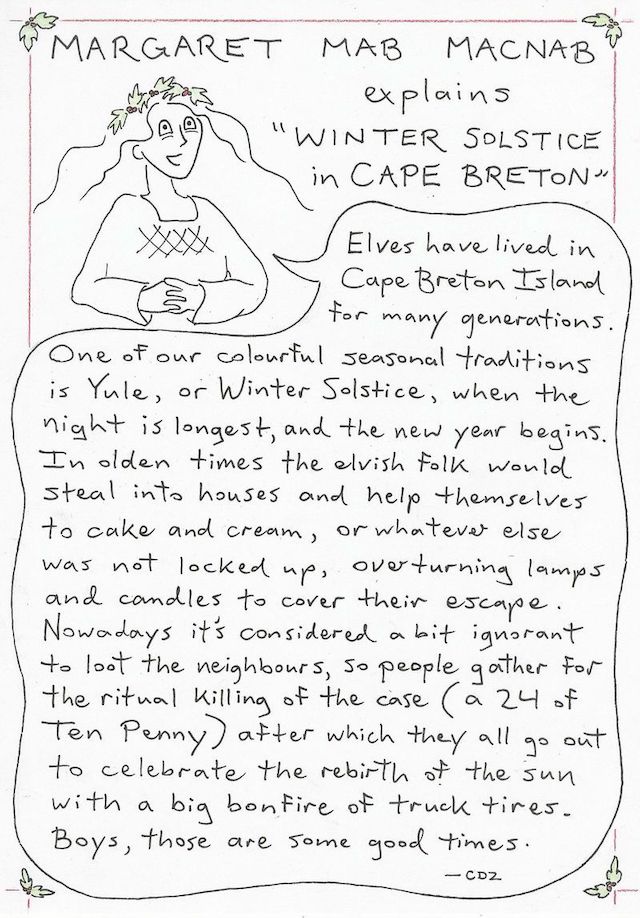 MARGARET MAB MACNAB
explains
"WINTER SOLSTICE
in CAPE BRETON"
Elves have lived in
Cape Breton Island
for many generations.
One of our colourful seasonal traditions
is Yule, or Winter Solstice, when the
night is longest, and the new year begins.
In olden times the elvish folk would
steal into houses and help themselves
to cake and cream, or whatever else
was not locked up, overturning lamps
and candles to cover their escape.
Nowadays it's considered a bit ignorant
to loot the neighbours, so people gather for
the ritual killing of the case (a 24 of
Ten Penny) after which they all go out
to celebrate the rebirth of the sun
with a big bonfire of truck tires.
Boys, those are some good times.
—CDZ